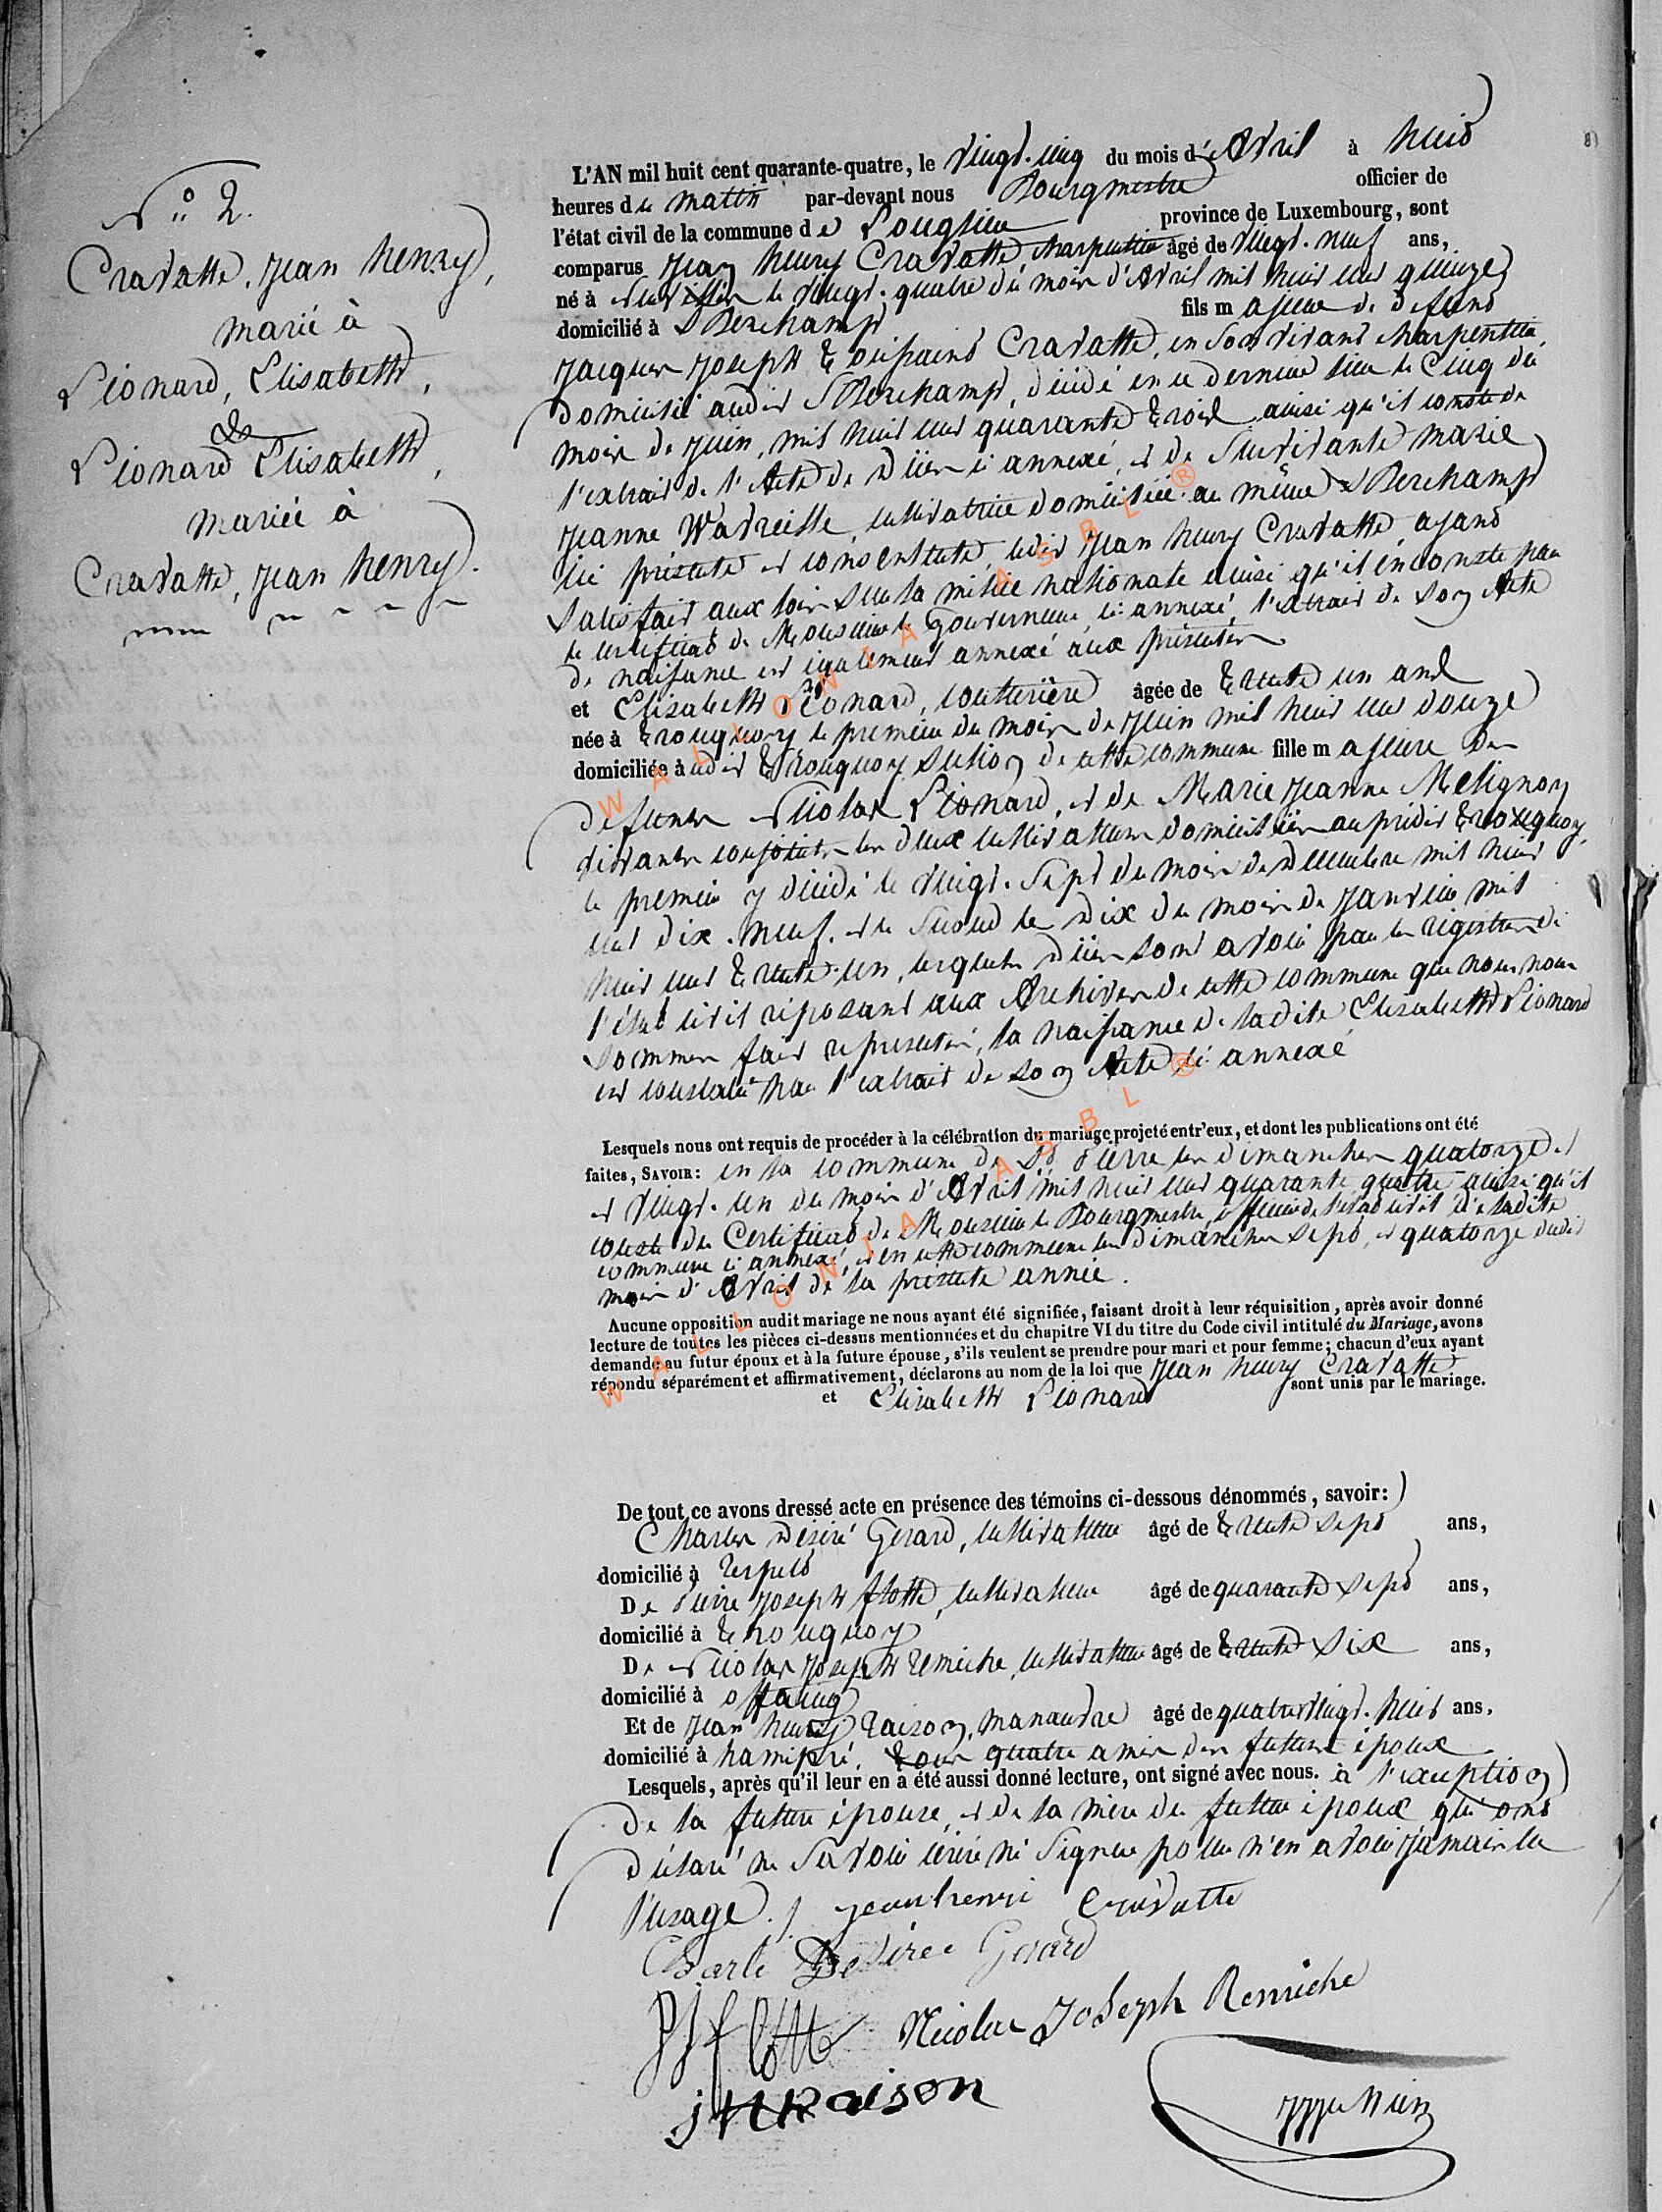 N° 2.
Cravatte, Jean henry,
marié à
Léonard, Elisabeth,
&
Léonard Elisabeth,
mariée à
Cravatte, Jean henry.
L'AN mil huit cent quarante-quatre, le vingt-cinq du mois d'Avril à huit
heures du matin par-devant nous Bourgmestre officier de
l'état civil de la commune de Longlier province de Luxembourg, sont
comparus Jean henry Cravatte, charpentier âgé de vingt-neuf ans,
né à le vingt-quatre du mois d'Avril mil huit cent quinze
domicilié à Berchamp fils majeur de defunt
Jacques Joseph Toussaint Cravatte, en son vivant charpentier,
domicilié audit Berchamp, décédé en ce dernier lieu le Cinq du
mois de Juin, mil huit cent quarante trois ainsi qu'il conste de
l'extrait de l'Acte de Décès ci annexé, et de Survivante Marie
Jeanne Watreisse, cultivatrice domiciliée au même Berchamp
ici présente et consentante, ledit Jean henry Cravatte, ayant
Satisfait aux loix sur la milice nationale ainsi qu'il en conste par
le certificat de Monsieur le Gouverneur, ci annexé, l'extrait de son Acte
de naissance est également annexé aux présentes
et Elisabeth Léonard, couturière âgée de trente un ans
née à Tronquoy le premier du mois de Juin mil huit cent douze
domiciliée à udit Tronquoy section de cette commune fille majeure des
defunts Nicolas Léonard, et de Marie Jeanne Melignon
vivants conjoints les deux cultivateurs domiciliés au prédit Tronquoy,
le premier y décédé le vingt-sept du mois de Décembre mil huit
cent dix-neuf, et la Seconde le Dix du mois de Janvier mil
huit cent trente-un, lesquels Décès sont avoir par les registres de
l'état civil reposant aux Archives de cette commune que nous nous
Sommes fait représenter, la naissance de ladite Elisabeth Léonard
est constatée par l'extrait de son Acte ci annexé
Lesquels nous ont requis de procéder à la célébration du mariage projeté entr'eux, et dont les publications ont été
faites, SAVOIR: en la commune de St Pierre les dimanches quatorze
et vingt-un du mois d'Avril mil huit cent quarante quatre ainsi qu'il
conste du Certificat de Monsieur le Bourgmestre, officier de l'état civil de ladite
commune ci annexé, et en cette commune les dimanches sept, et quatorze dudit
mois d'Avril de la présente année.
Aucune opposition audit mariage ne nous ayant été signifiée, faisant droit à leur réquisition, après avoir donné
lecture de toutes les pièces ci-dessus mentionnées et du chapitre VI du titre du Code civil intitulé du Mariage, avons
demandé au futur époux et à la future épouse, s'ils veulent se prendre pour mari et pour femme; chacun d'eux ayant
répondu séparément et affirmativement, déclarons au nom de la loi que Jean henry Cravatte
et Elisabeth Léonard sont unis par le mariage.
De tout ce avons dressé acte en présence des témoins ci-dessous dénommés, savoir:
Charles Désiré Gerard, cultivateur âgé de trente sept ans,
domicilié à Respelt
De Pierre Joseph flotte, cultivateur âgé de quarante sept ans,
domicilié à Tronquoy
De Nicolas Joseph Remiche, cultivateur âgé de trente six ans,
domicilié à offaing
Et de Jean henry Raison, manœuvre âgé de quatrevingt-huit ans,
domicilié à hamipré, tous quatre amis des futurs époux
Lesquels, après qu'il leur en a été aussi donné lecture, ont signé avec nous. à l'exception
de la future épouse, et de la mère du futur époux qui ont
déclaré ne Savoir écrire ni Signer pour n'en avoir jamais eu
l'usage. Jean henri Cravatte
Charle Desiree Gerard
PJ flotte Nicolas Joseph Remiche
JH Raison
WALLONIA ASBL ®
WALLONIA ASBL ®